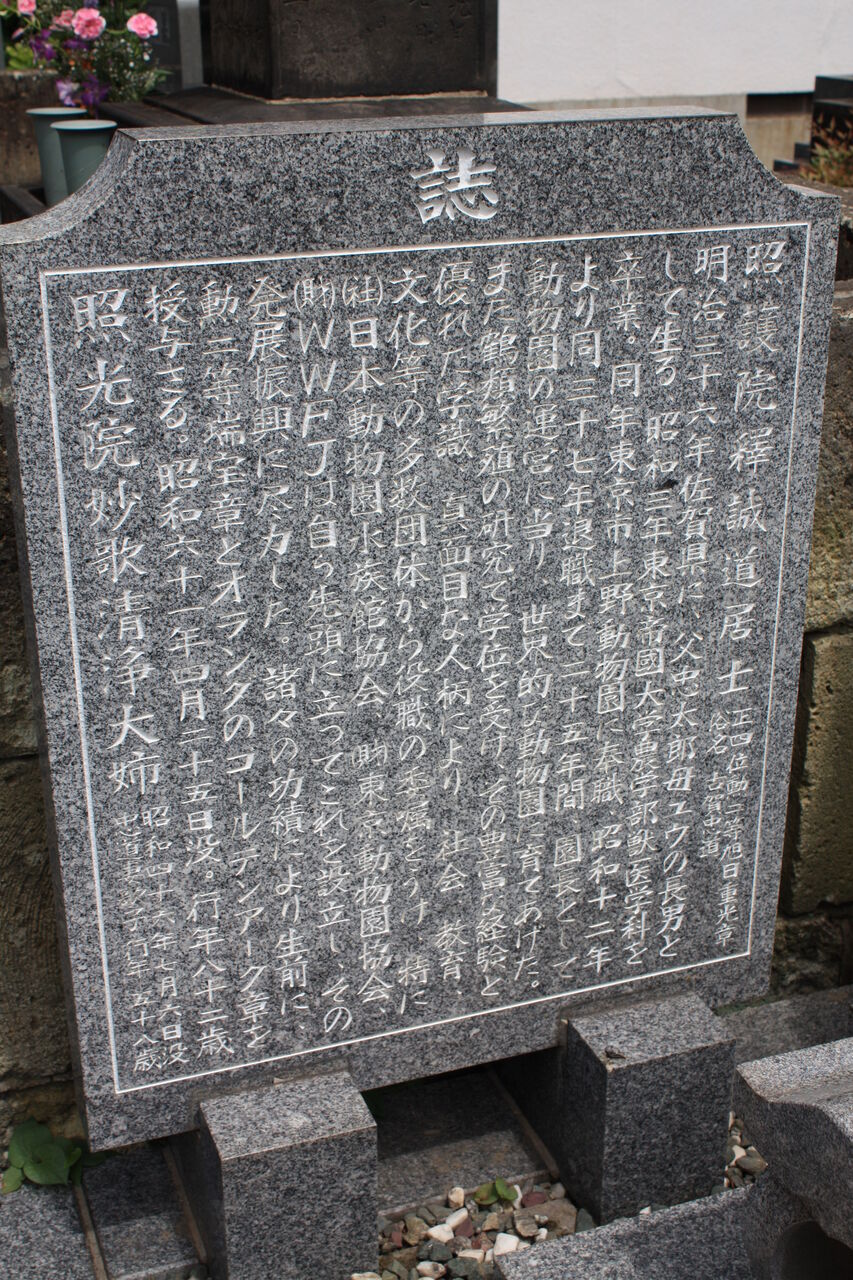 誌
照護院釋誠道居士 正四位勲二等旭日重光章
俗名 古賀忠道
明治三十六年佐賀県に、父忠太郎母ユウの長男と
して生る、昭和三年東京帝國大学農学部獣医学科を
卒業。同年東京市上野動物園に奉職、昭和十二年
より同三十七年退職まで二十五年間 園長として
動物園の運営に当り、世界的な動物園に育てあげた。
また鶴類繁殖の研究で学位を受け、その豊富な経験と
優れた学識、真面目な人柄により 社会、教育、
文化等の多数団体から役職の委嘱をうけ 特に
(社)日本動物園水族館協会、(財)東京動物園協会、
(財)WWFJは自ら先頭に立つてこれを設立し、その
発展振興に尽力した。諸々の功績により生前に、
勲二等瑞宝章とオランダのゴールデンアーク章を
授与さる。昭和六十一年四月二十五日没。行年八十二歳
照光院妙歌清浄大姉 昭和四十六年七月六日没
忠道妻 行年 五十八歳